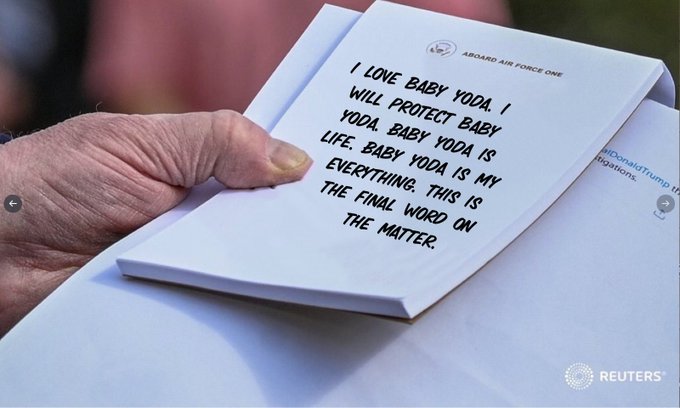 ABOARD AIR FORCE ONE
I LOVE BABY YODA. I
WILL PROTECT BABY
YODA. BABY YODA IS
LIFE. BABY YODA IS MY
EVERYTHING. THIS IS
THE FINAL WORD ON
THE MATTER.
alDonaldTrump th
tigations.
REUTERS